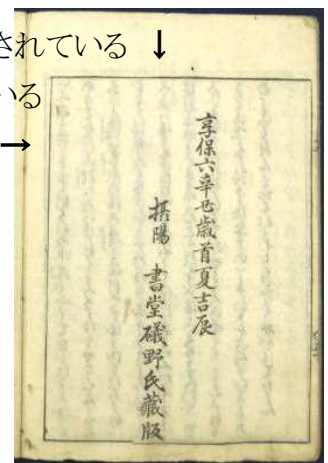 されている ↓
いる
→
享保六辛丑歳首夏吉辰
摂陽 書堂礒野氏蔵版